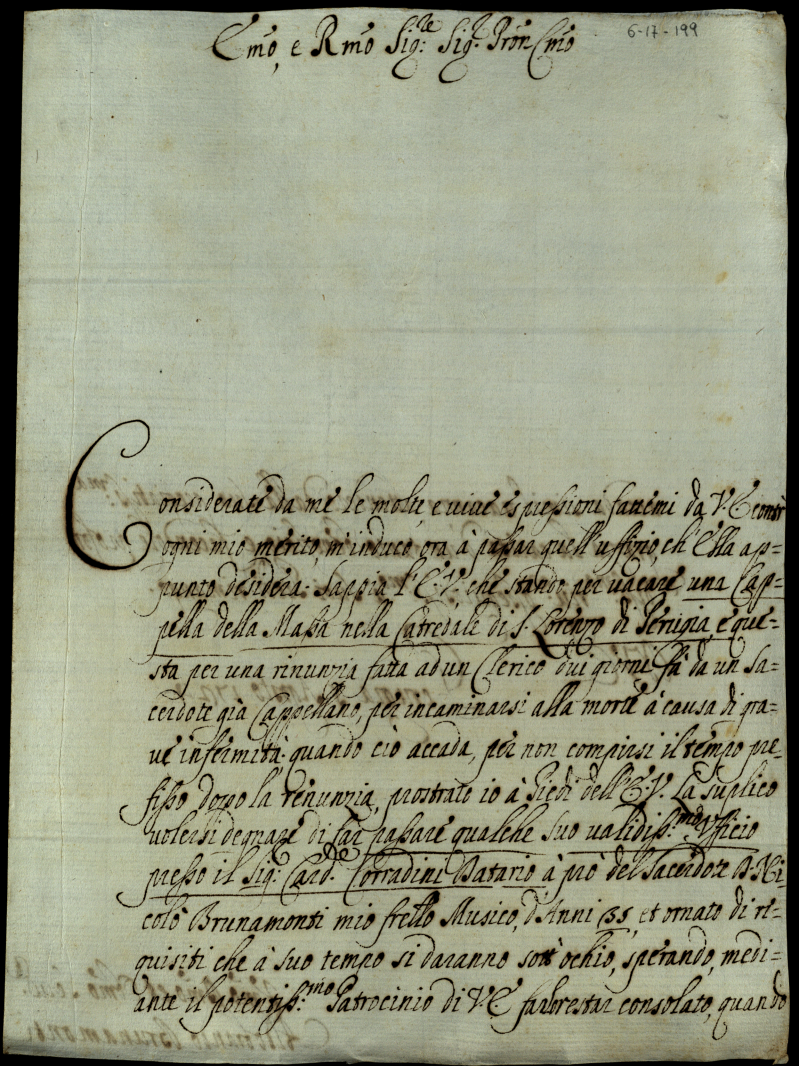 6-17-199
Emo, e Rmo Sig.re Sig.r Pron Cmo
Considerate da me le molte, e vive espressioni fattemi da V. E contr
ogni mio merito, m'induco ora à passar quell'uffizio, ch'Ella ap=
punto desidera: Sappia l'E.V. che stando per vacare una Cap=
pella della Massa nella Catredale di S. Lorenzo di Perugia, e que=
sta per una rinunzia fatta ad un Clerico dui giorni fà da un Sa=
cerdote già Cappellano, per incaminarsi alla morte à causa di gra=
ve infermità: quando ciò accada, per non compirsi il tempo pre=
fisso dopo la renunzia, prostrato io à Piedi dell'E.V. La suplico
volersi degnare di far passare qualche suo validiss.mo Ufficio
presso il Sig. Card.le Corradini Datario, à prò del Sacerdote D. Ni=
colò Brunamonti mio frello Musico, d'Anni 35, et ornato di re=
quisiti che à suo tempo si daranno sott'ochio, sperando, medi=
ante il potentiss.mo Patrocinio di V.E. farlo restar consolato, quando